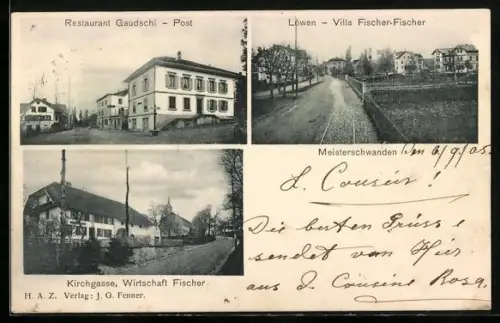 Restaurant Gaudschi – Post
Löwen – Villa Fischer-Fischer
Meisterschwanden, Den 6/9/05.
L. Cousin!
Die besten Grüsse
sendet von Hier
aus d. Cousine Rosa.
Kirchgasse, Wirtschaft Fischer
H. A. Z. Verlag: J. G. Fenner.